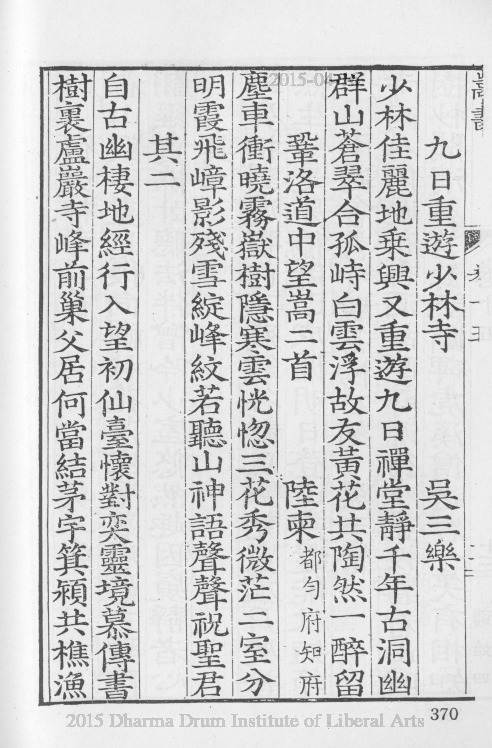 嵩書
卷十五
九日重遊少林寺　吳三樂
少林佳麗地乗興又重遊九日禪堂靜千年古洞幽
群山蒼翠合孤峙白雲浮故友黃花共陶然一醉留
鞏洛道中望嵩二首　陸柬都匀府知府
塵車衝曉霧嶽樹隱寒雲恍惚三花秀微茫二室分
明霞飛嶂影殘雪綻峰紋若聽山神語聲聲祝聖君
其二
自古幽棲地經行入望初仙臺懷對奕靈境慕傳書
樹裏盧巖寺峰前巢父居何當結茅宇箕潁共樵漁
370
2015 Dharma Drum Institute of Liberal Arts